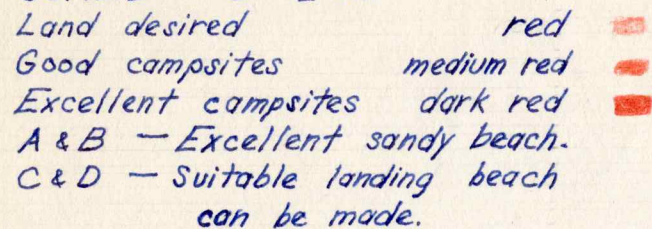 Land desired red
Good campsites medium red
Excellent campsites dark red
A & B — Excellent sandy beach.
C & D — Suitable landing beach
can be made.